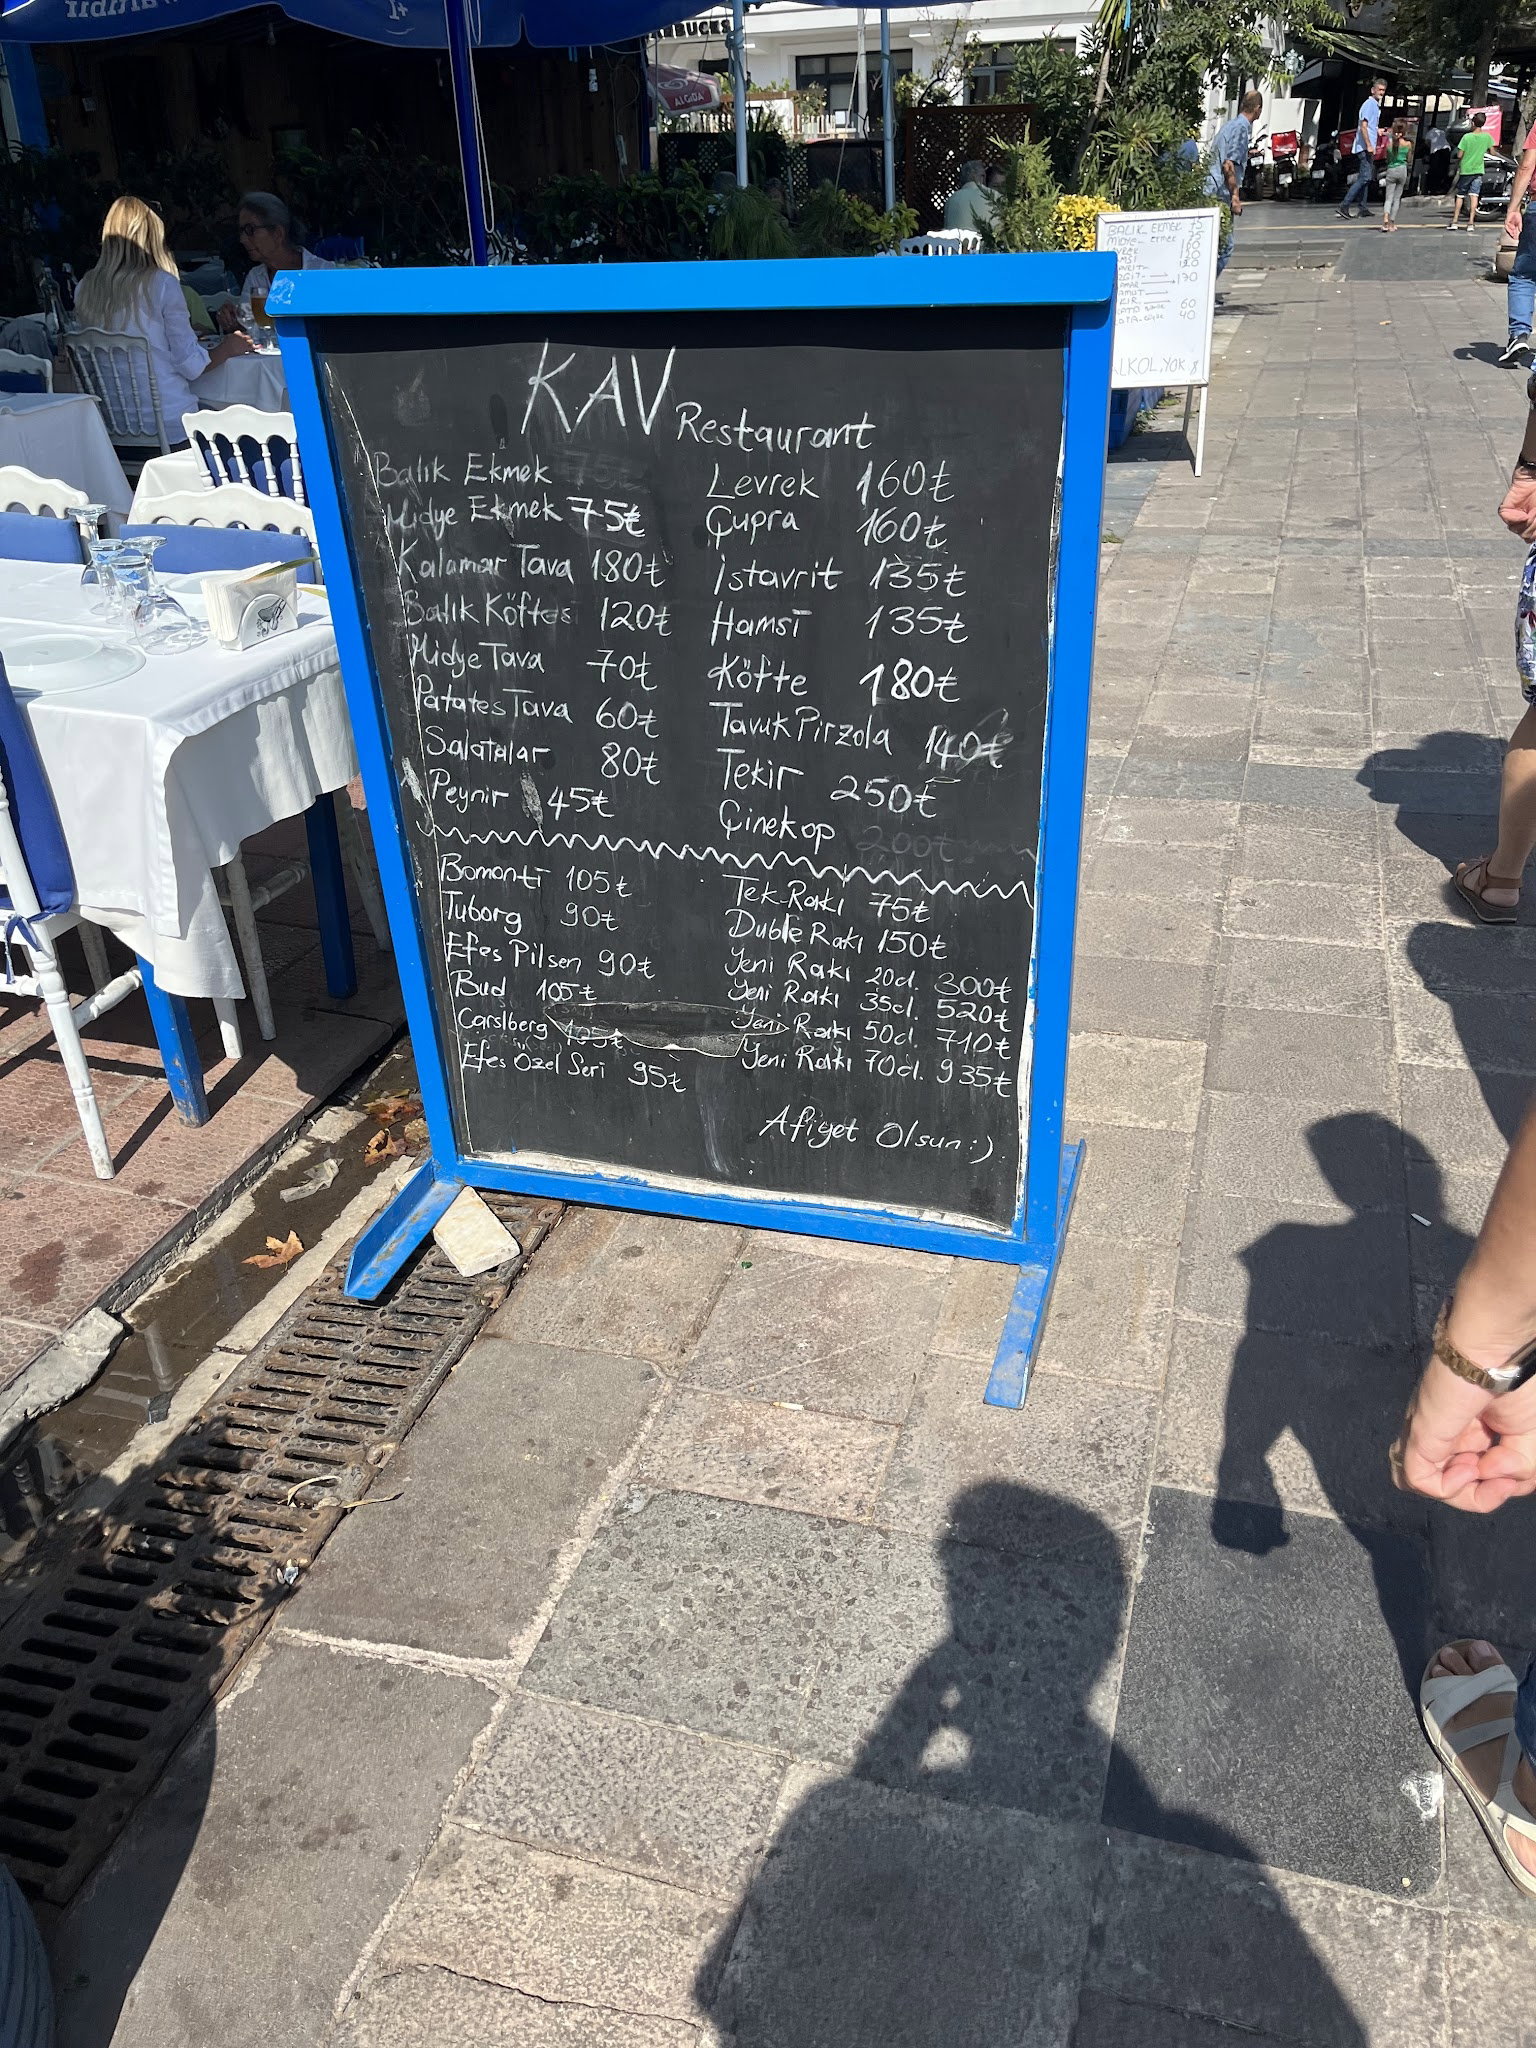 BUCKS
ALGIDA
KAV Restaurant
Balık Ekmek 75₺
Midye Ekmek 75₺
Kalamar Tava 180₺
Balık Köftesi 120₺
Midye Tava 70₺
Patates Tava 60₺
Salatalar 80₺
Peynir 45₺
Levrek 160₺
Çupra 160₺
İstavrit 135₺
Hamsi 135₺
Köfte 180₺
Tavuk Pirzola 140₺
Tekir 250₺
Çinekop 200₺
Bomonti 105₺
Tuborg 90₺
Efes Pilsen 90₺
Bud 105₺
Carslberg 105₺
Efes Özel Seri 95₺
Tek Rakı 75₺
Duble Rakı 150₺
Yeni Rakı 20cl. 300₺
Yeni Rakı 35cl. 520₺
Yeni Rakı 50cl. 710₺
Yeni Rakı 70cl. 935₺
Afiyet Olsun :)
BALIK EKMEK 75
MİDYE EKMEK
60
40
ALKOL YOK